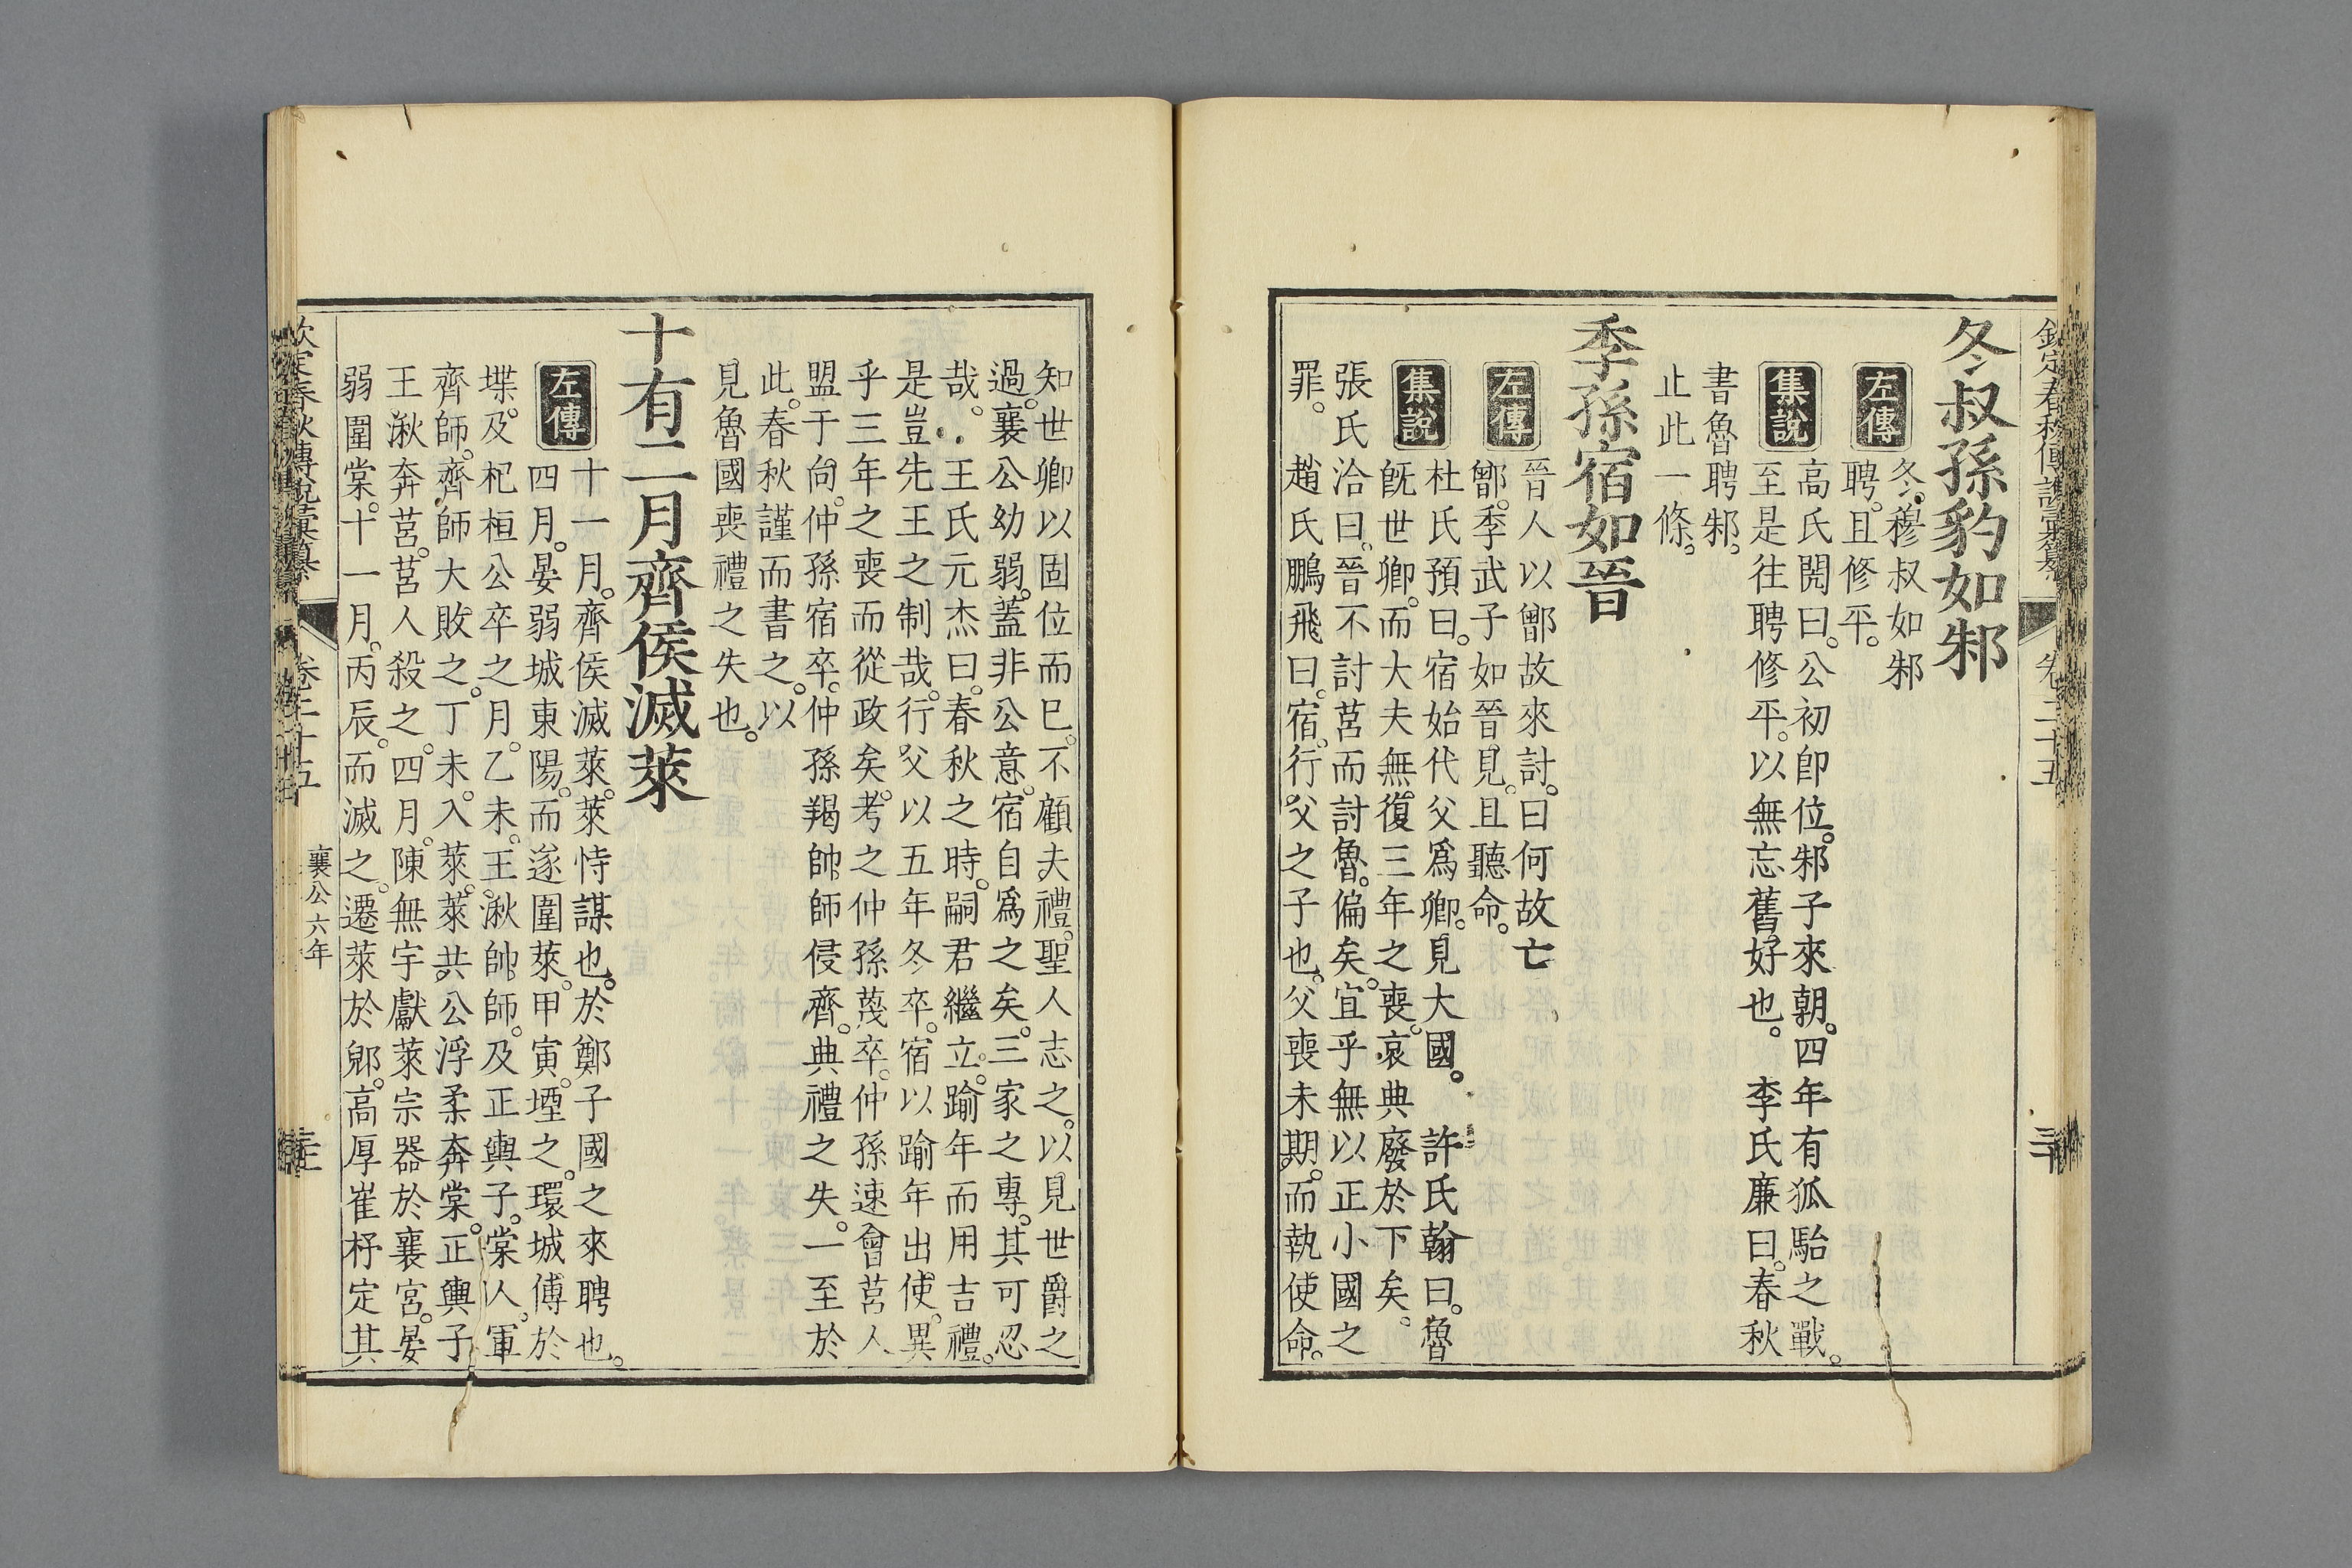 欽定春秋傳說彙纂　卷二十五　三十
冬叔孫豹如邾
左傳
冬。穆叔如邾
聘。且修平。
集說
高氏閌曰。公初卽位。邾子來朝。四年有狐駘之戰。
至是往聘修平。以無忘舊好也。　李氏廉曰。春秋
書魯聘邾。
止此一條。
季孫宿如晉
左傳
晉人以鄫故來討。曰何故亡
鄫。季武子如晉見。且聽命。
集說
杜氏預曰。宿始代父爲卿。見大國。　許氏翰曰。魯
旣世卿。而大夫無復三年之喪。哀典廢於下矣。
張氏洽曰。晉不討莒而討魯。偏矣。宜乎無以正小國之
罪。　趙氏鵬飛曰。宿。行父之子也。父喪未期。而執使命。
知世卿以固位而已。不顧夫禮。聖人志之。以見世爵之
過。襄公幼弱。蓋非公意。宿自爲之矣。三家之專。其可忍
哉。　王氏元杰曰。春秋之時。嗣君繼立。踰年而用吉禮。
是豈先王之制哉。行父以五年冬卒。宿以踰年出使。異
乎三年之喪而從政矣。考之仲孫蔑卒。仲孫速會莒人
盟于向。仲孫宿卒。仲孫羯帥師侵齊。典禮之失。一至於
此。春秋謹而書之。以
見魯國喪禮之失也。
十有二月齊侯滅萊
左傳
十一月。齊侯滅萊。萊恃謀也。於鄭子國之來聘也。
四月。晏弱城東陽。而遂圍萊。甲寅。堙之。環城傅於
堞。及杞桓公卒之月。乙未。王湫帥師。及正輿子。棠人。軍
齊師。齊師大敗之。丁未。入萊。萊共公浮柔奔棠。正輿子
王湫奔莒。莒人殺之。四月。陳無宇獻萊宗器於襄宮。晏
弱圍棠。十一月。丙辰。而滅之。遷萊於郳。高厚崔杼定其
欽定春秋傳說彙纂　卷二十五　襄公六年